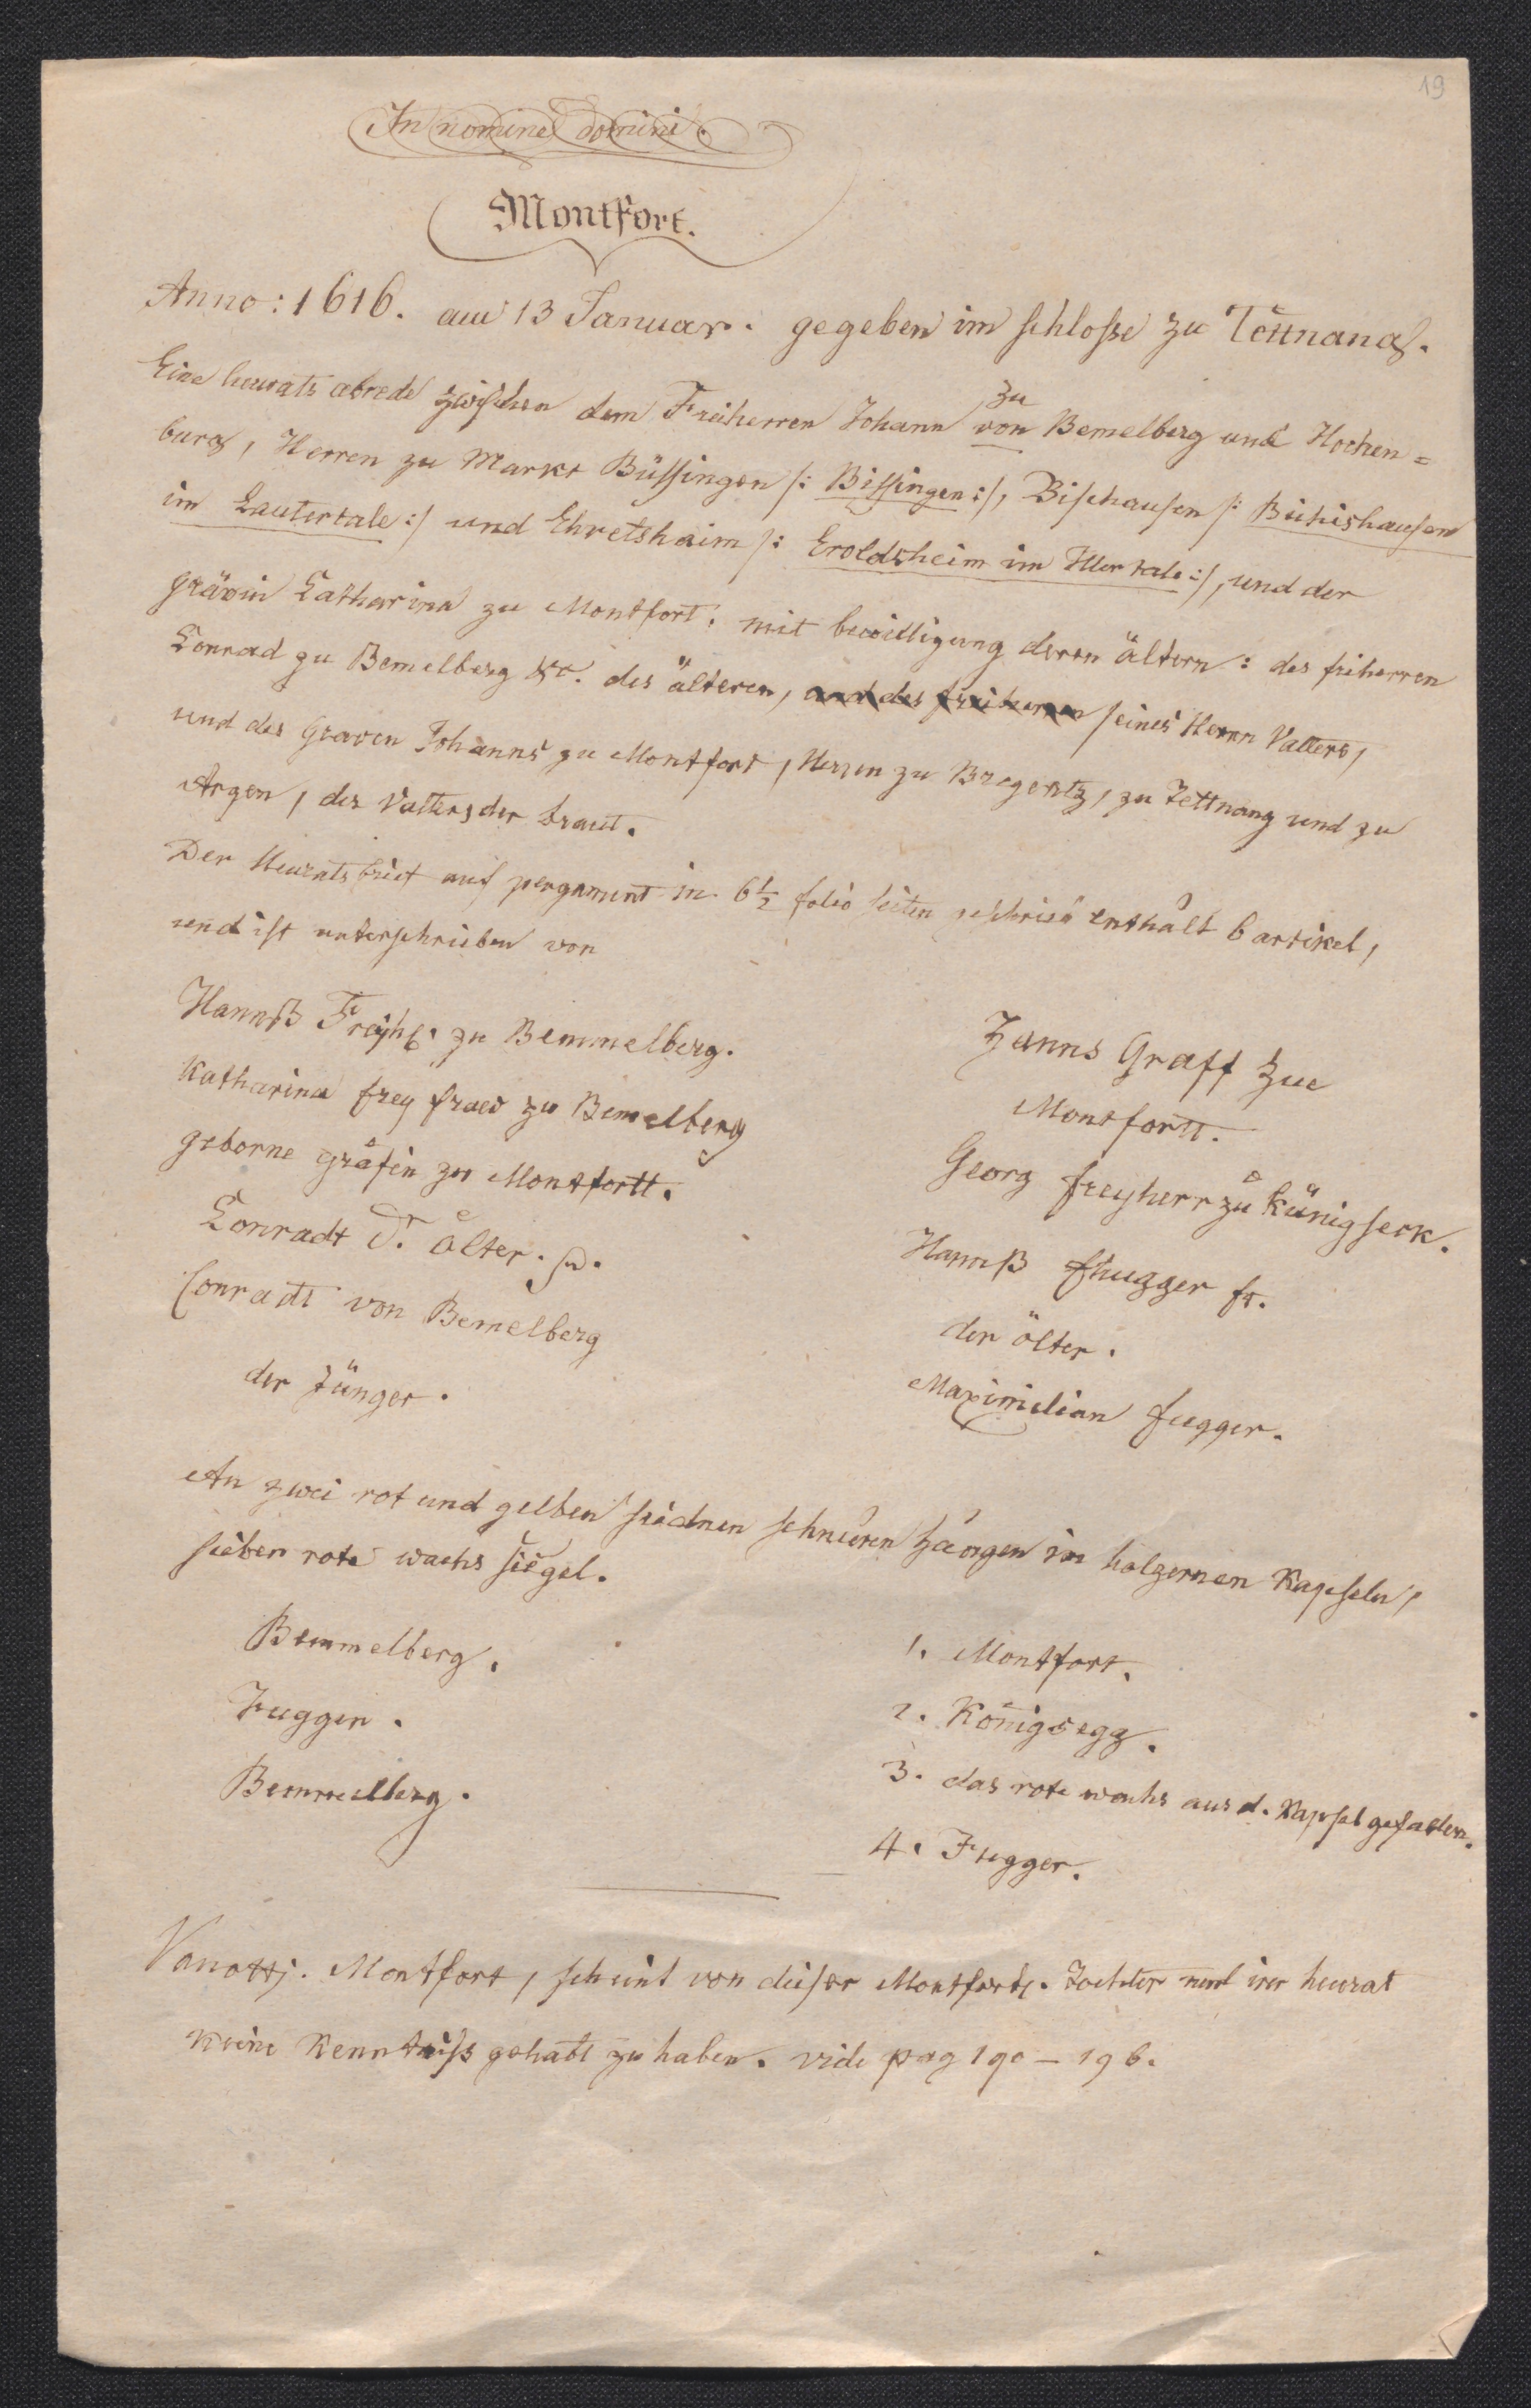 19
In nomine domini.
Montfort.
Anno: 1616. am 13 Januar. gegeben im schlosse zu Tettnang.
Eine heurats abrede zwischen dem Freiherren Johann von Bemelberg und Hochen=
zu
burg, Herren zu Markt Büssingen /: Bissingen :/, Bischausen /: Bichishausen
im Lautertale :/ und Ehretshaim /: Eroldsheim im Illertale :/, und der
grävin Catharina zu Montfort, mit bewilligung deren ältern: des friherren
Conrad zu Bemelberg &c. des älteren, und des friherren seines Herrn Vatters,
und des Graven Johanns zu Montfort, Herren zu Bregentz, zu Tettnang und zu
Argen, des Vatters der braut.
Der Heuratsbrief auf pergament in 6½ folio seiten enthält 6 artikel,
und ist unterschrieben von
Hannß Freyh. zu Bemmelberg.
Katharina frey fraw zu Bemelberg
geborne gräfin zu Montfortt.
Conradt d. älter.
Conradt von Bemelberg
der Jünger.
Hanns Graff zue
Montfortt.
Georg freyherr zu Künigseck.
Hannß fhugger fr.
der ölter.
Maximilian fugger.
An zwei rot und gelben seidnen schnüren hängen in holzernen Kapseln,
sieben rote wachs siegel.
Bemmelberg.
Fugger.
Bemmelberg.
1. Montfort.
2. Königsegg.
3. das rote wachs aus d. Kapsel gefallen.
4. Fugger.
Vanotti. Montfort, scheint von dieser Montfort. Tochter und irer heurat
keine Kenntniss gehabt zu haben. vide pag 190 – 196.